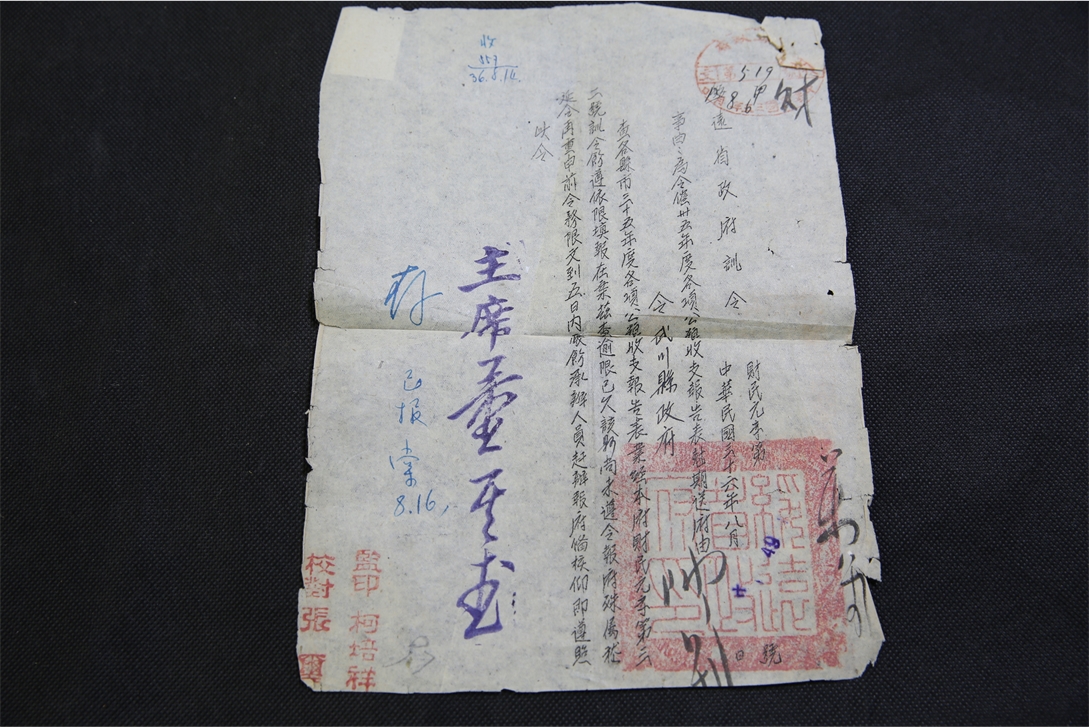 財
519
遠省政府訓令
財民元李第 號
中華民國三十六年八月 日
49
事由：為令催卅五年度各項公糧收支報告表尅期送府由
令武川縣政府
查各縣市三十五年度各項公糧收支報告表業經本府財民元李第三
三號訓令飭遵依限填報在案茲查逾限已久該縣尚未遵令報府殊屬
延令再重申前令務限文到五日內嚴飭承辦人員赶辦報府備核仰即遵照
此令
主席董其武
收
559
36.8.14.
存
已報
8.16,
監印 柯培祥
校對 張